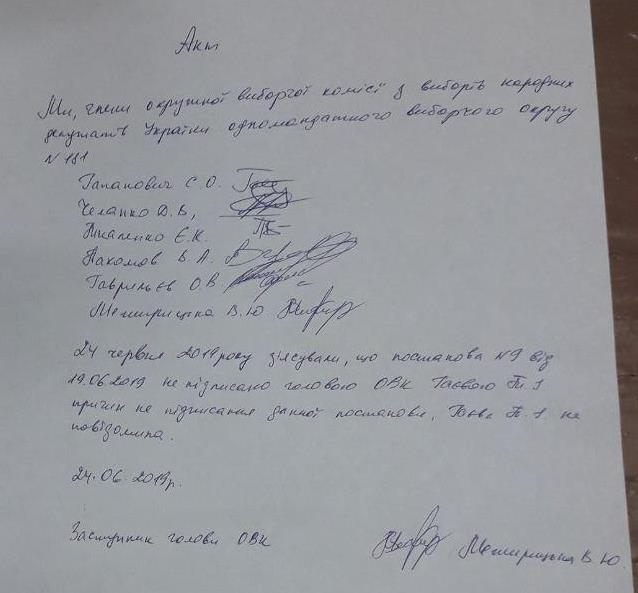 Акт
Ми, члени окружної виборчої комісії з виборів народних
депутатів України одномандатного виборчого округу
N 181
Гапанович С.О.
Челапко Д.В,
Ткаленко Є.К.
Пахомов В А.
Гаврильєв О В.
Межирицька В.Ю
24 червня 2019 року зʼясували, що постанова N9 від
19.06.2019 не підписано головою ОВК Гаєвою Т. І
причин не підписання данної постанови, Гаєва Т. І не
повідомила.
24.06.2019р.
Заступник голови ОВК Межирицька В.Ю.